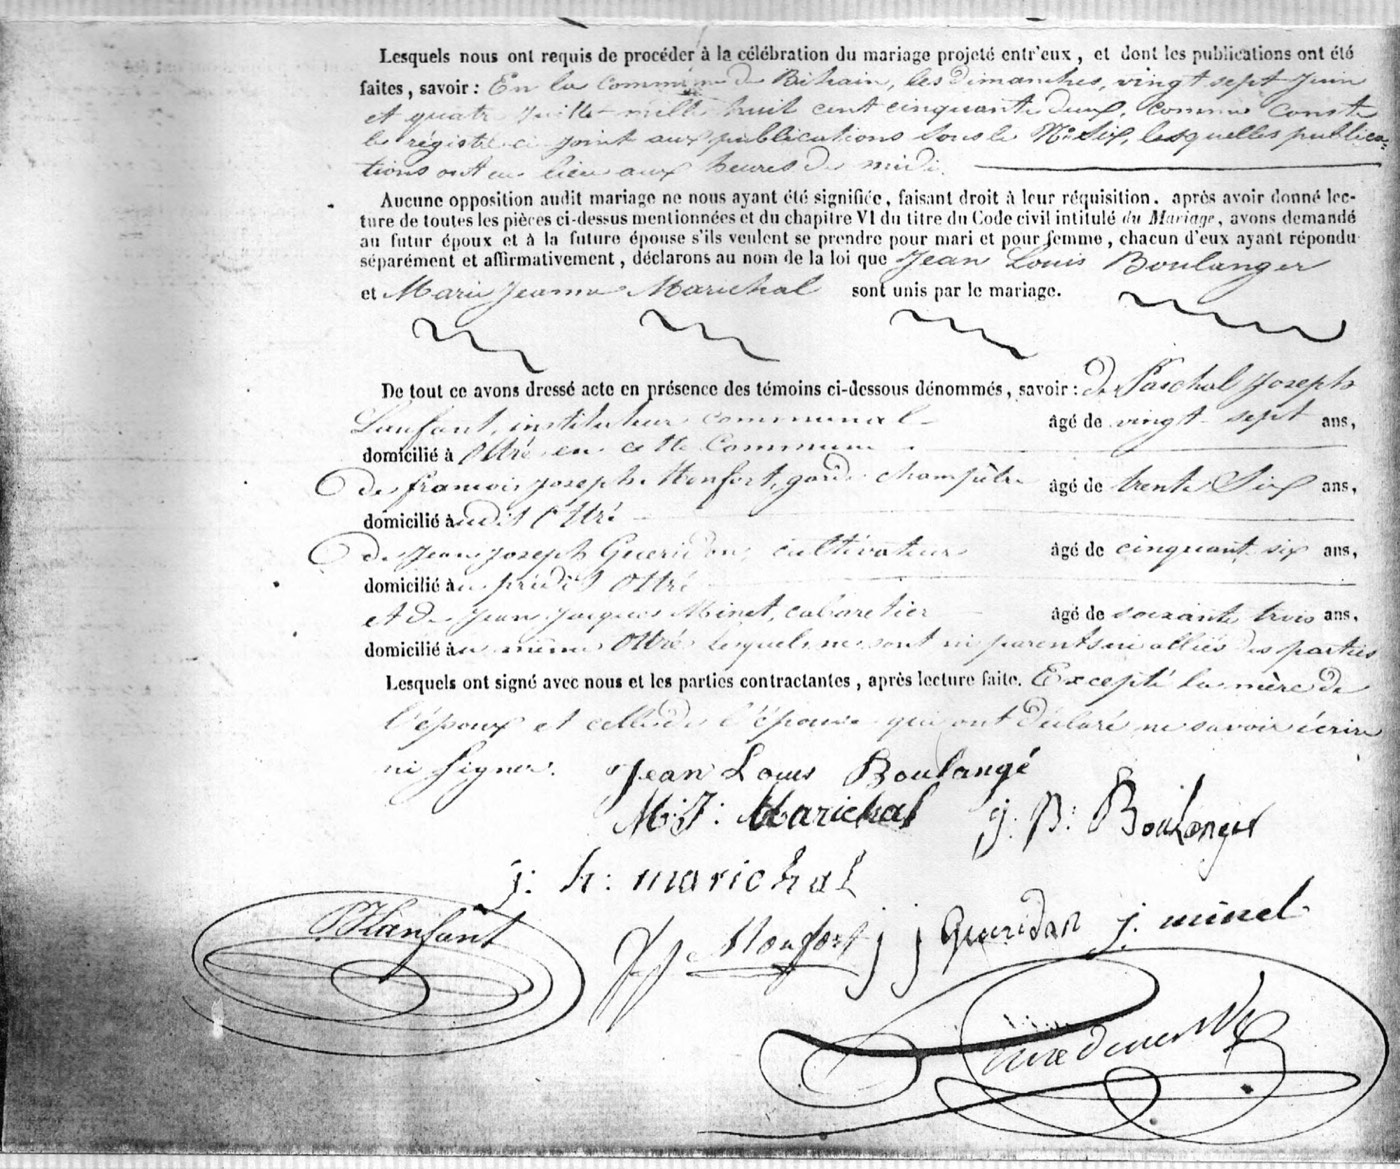 Lesquels nous ont requis de procéder à la célébration du mariage projeté entr'eux, et dont les publications ont été
faites, savoir : En la commune de Bihain, les dimanches, vingt sept Juin
et quatre Juillet mille huit cent cinquante deux, comme conste
le régistre ci joint aux publications sous le N° Six, lesquelles publica=
tions ont eu lieu aux heures de midi.
Aucune opposition audit mariage ne nous ayant été signifiée, faisant droit à leur réquisition. après avoir donné lec-
ture de toutes les pièces ci-dessus mentionnées et du chapitre VI du titre du Code civil intitulé du Mariage, avons demandé
au futur époux et à la future épouse s'ils veulent se prendre pour mari et pour femme, chacun d'eux ayant répondu
séparément et affirmativement, déclarons au nom de la loi que Jean Louis Boulanger
et Marie Jeanne Marichal sont unis par le mariage.
De tout ce avons dressé acte en présence des témoins ci-dessous dénommés, savoir : de Paschal Joseph
Lanfant, instituteur communal âgé de vingt sept ans,
domicilié à Ottré en cette Commune
de francois Joseph Monfort, garde champêtre âgé de trente Six ans,
domicilié audit Ottré
de Jean Joseph Gueridon, cultivateur âgé de cinquant six ans,
domicilié au prédit Ottré
et de Jean Jacques Minet, cabaretier âgé de soixante trois ans.
domicilié au même Ottré lesquels ne sont ni parents ni alliés des parties
Lesquels ont signé avec nous et les parties contractantes, après lecture faite. Excepté la mère de
l'époux et celle de l'épouse qui ont déclaré ne savoir écrire
ni signer. Jean Louis Boulangé
M: J: Marichal j: B: Boulanger
j: h: marichal
Lanfant
Monfort j j Gueridon j: minet